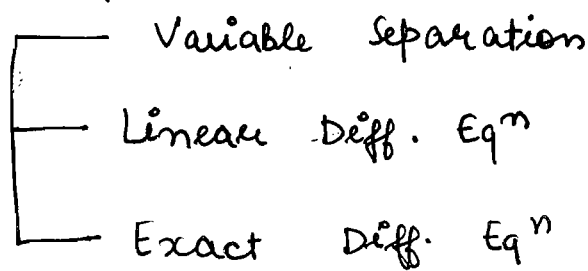 Variable Separation
Linear Diff. Eqⁿ
Exact Diff. Eqⁿ